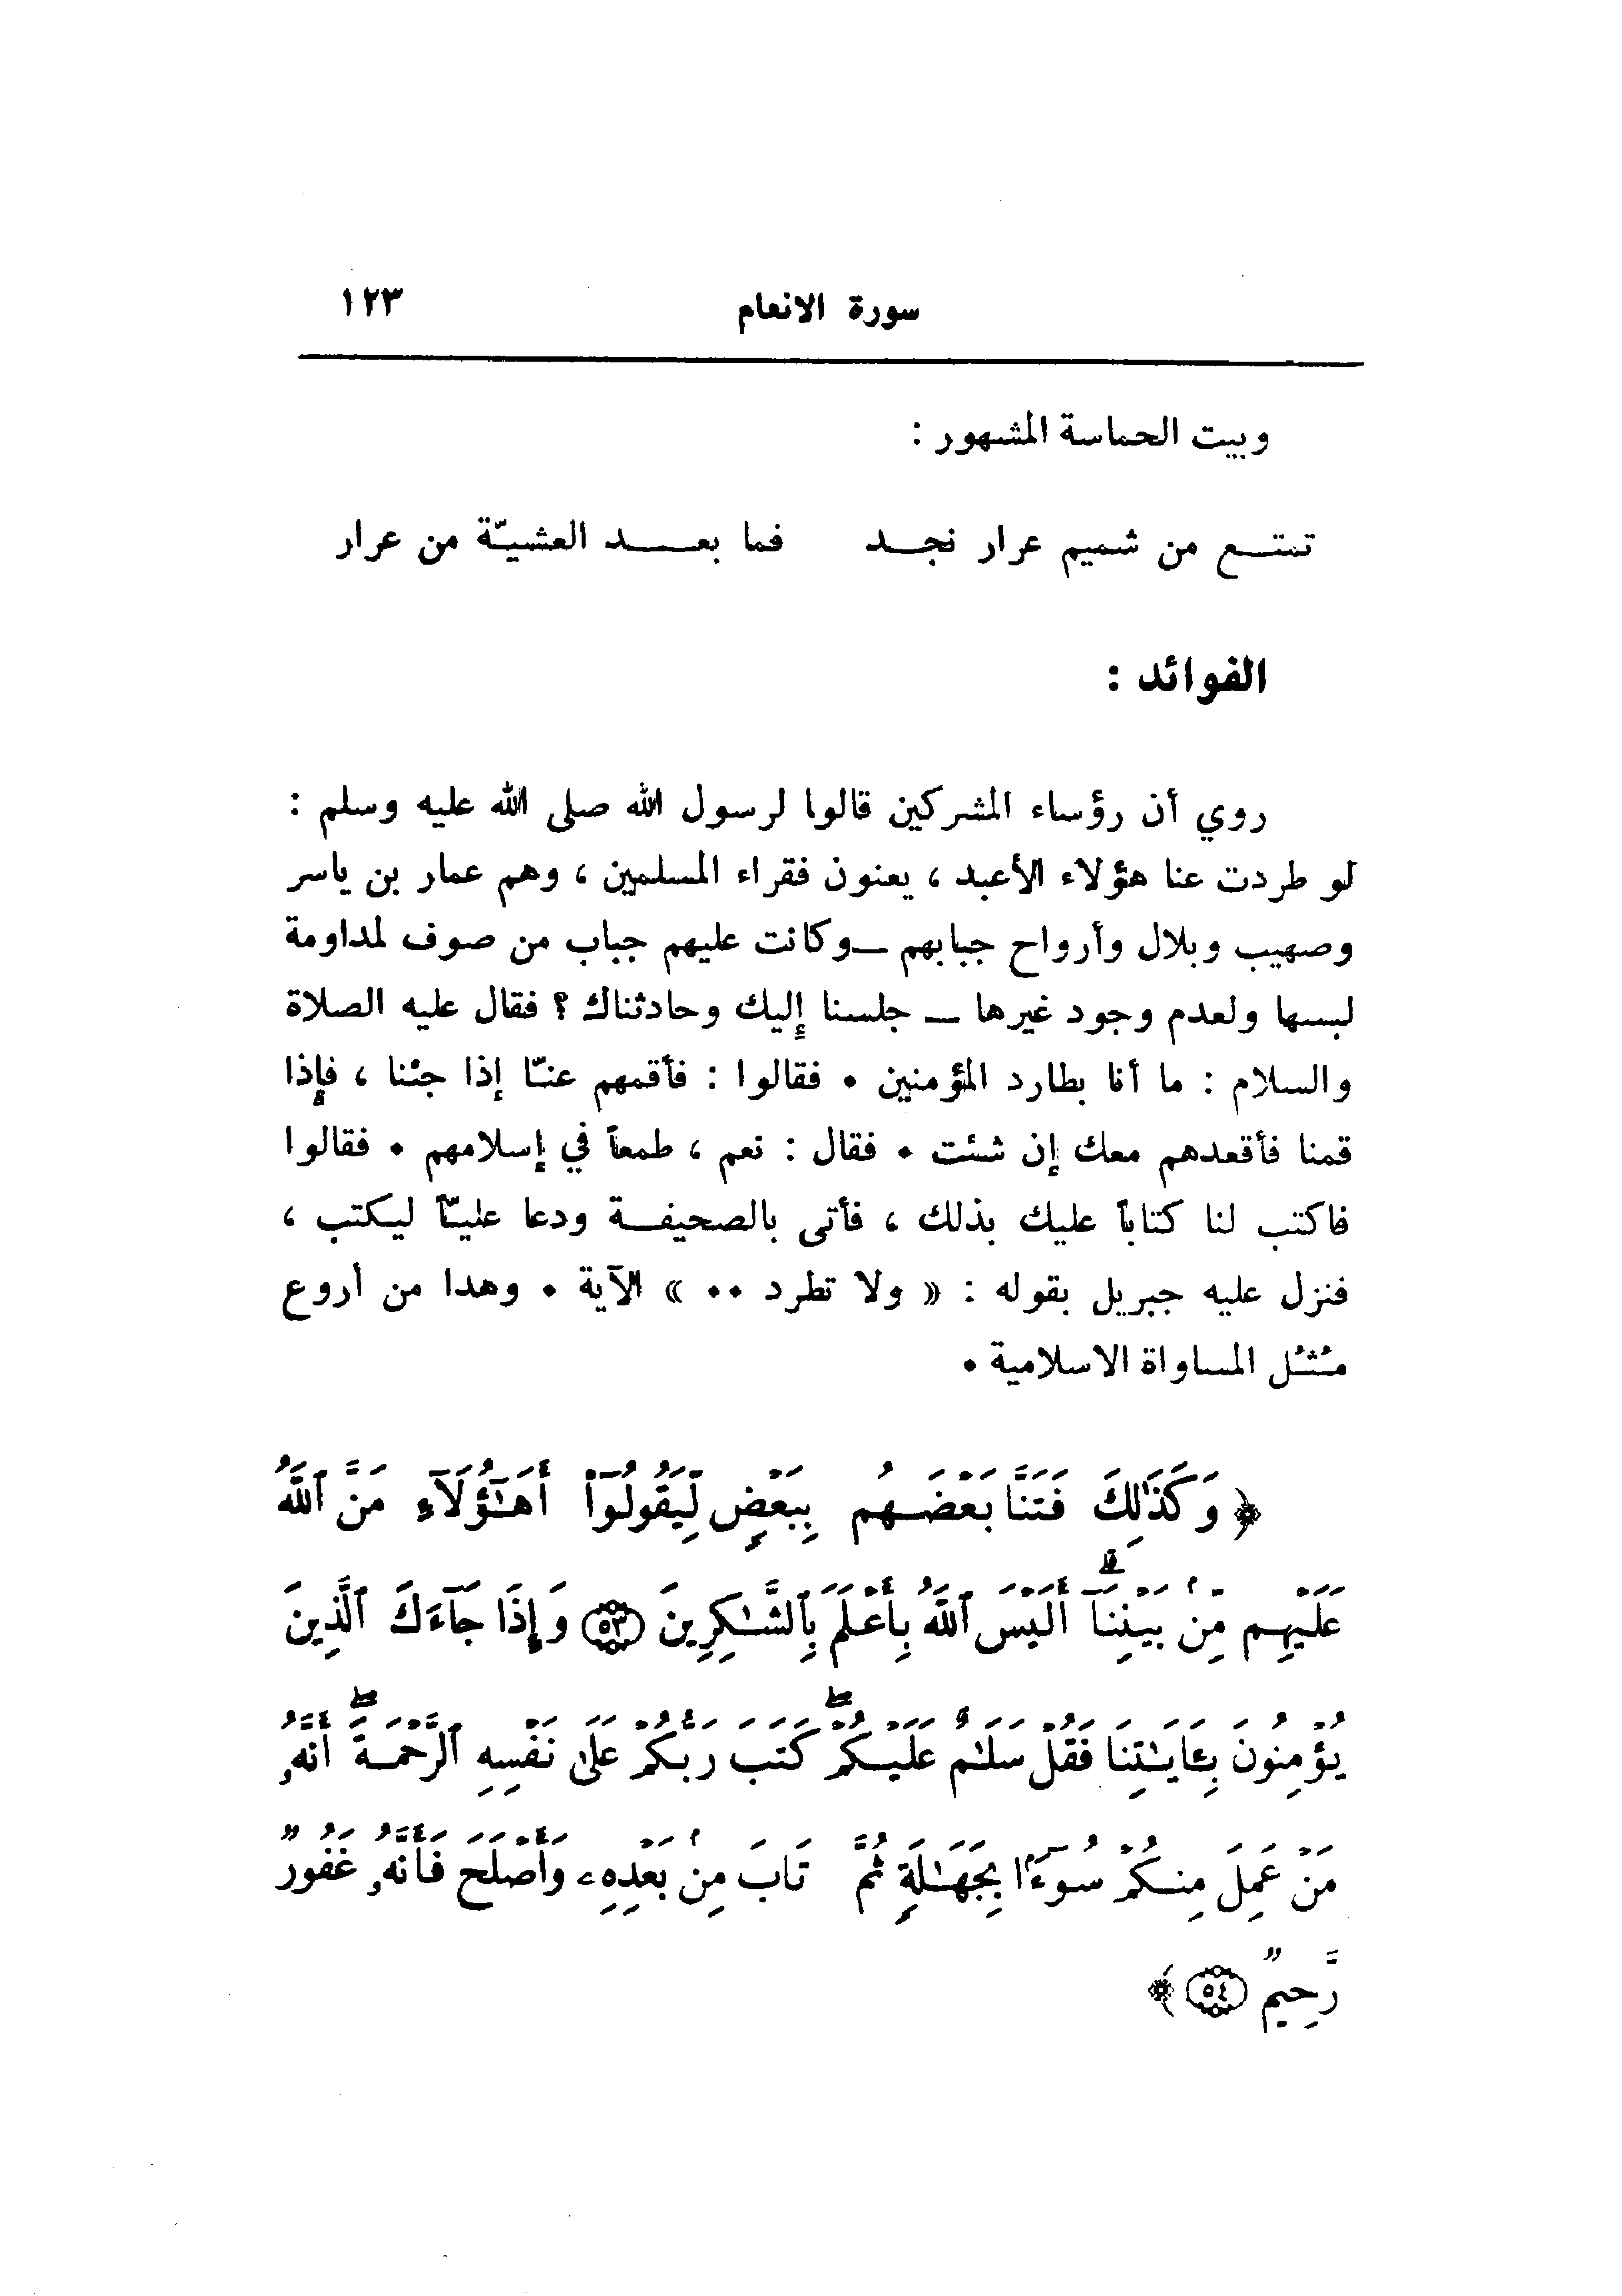 سورة الانعام ١٢٣
وبيت الحماسة المشهور :
تمتـــع من شميم عرار نجـــد فما بعـــــد العشيّة من عرار
الفوائد :
روي أن رؤساء المشركين قالوا لرسول الله صلى الله عليه وسلم :
لو طردت عنا هؤلاء الأعبد ، يعنون فقراء المسلمين ، وهم عمار بن ياسر
وصهيب وبلال وأرواح جبابهم ــ وكانت عليهم جباب من صوف لمداومة
لبسها ولعدم وجود غيرها ــ جلسنا إليك وحادثناك ؟ فقال عليه الصلاة
والسلام : ما أنا بطارد المؤمنين . فقالوا : فأقمهم عنّا إذا جئنا ، فإذا
قمنا فأقعدهم معك إن شئت . فقال : نعم ، طمعاً في إسلامهم . فقالوا
فاكتب لنا كتاباً عليك بذلك ، فأتى بالصحيفـــة ودعا عليّاً ليكتب ،
فنزل عليه جبريل بقوله : « ولا تطرد .. » الآية . وهدا من أروع
مُثُل المساواة الاسلامية .
﴿ وَكَذَٰلِكَ فَتَنَّا بَعْضَهُم بِبَعْضٍ لِّيَقُولُوٓا۟ أَهَٰٓؤُلَآءِ مَنَّ ٱللَّهُ
عَلَيْهِم مِّنۢ بَيْنِنَآ ۗ أَلَيْسَ ٱللَّهُ بِأَعْلَمَ بِٱلشَّٰكِرِينَ ٥٣ وَإِذَا جَآءَكَ ٱلَّذِينَ
يُؤْمِنُونَ بِـَٔايَٰتِنَا فَقُلْ سَلَٰمٌ عَلَيْكُمْ ۖ كَتَبَ رَبُّكُمْ عَلَىٰ نَفْسِهِ ٱلرَّحْمَةَ ۖ أَنَّهُۥ
مَنْ عَمِلَ مِنكُمْ سُوٓءًۢا بِجَهَٰلَةٍ ثُمَّ تَابَ مِنۢ بَعْدِهِۦ وَأَصْلَحَ فَأَنَّهُۥ غَفُورٌ
رَّحِيمٌ ٥٤ ﴾